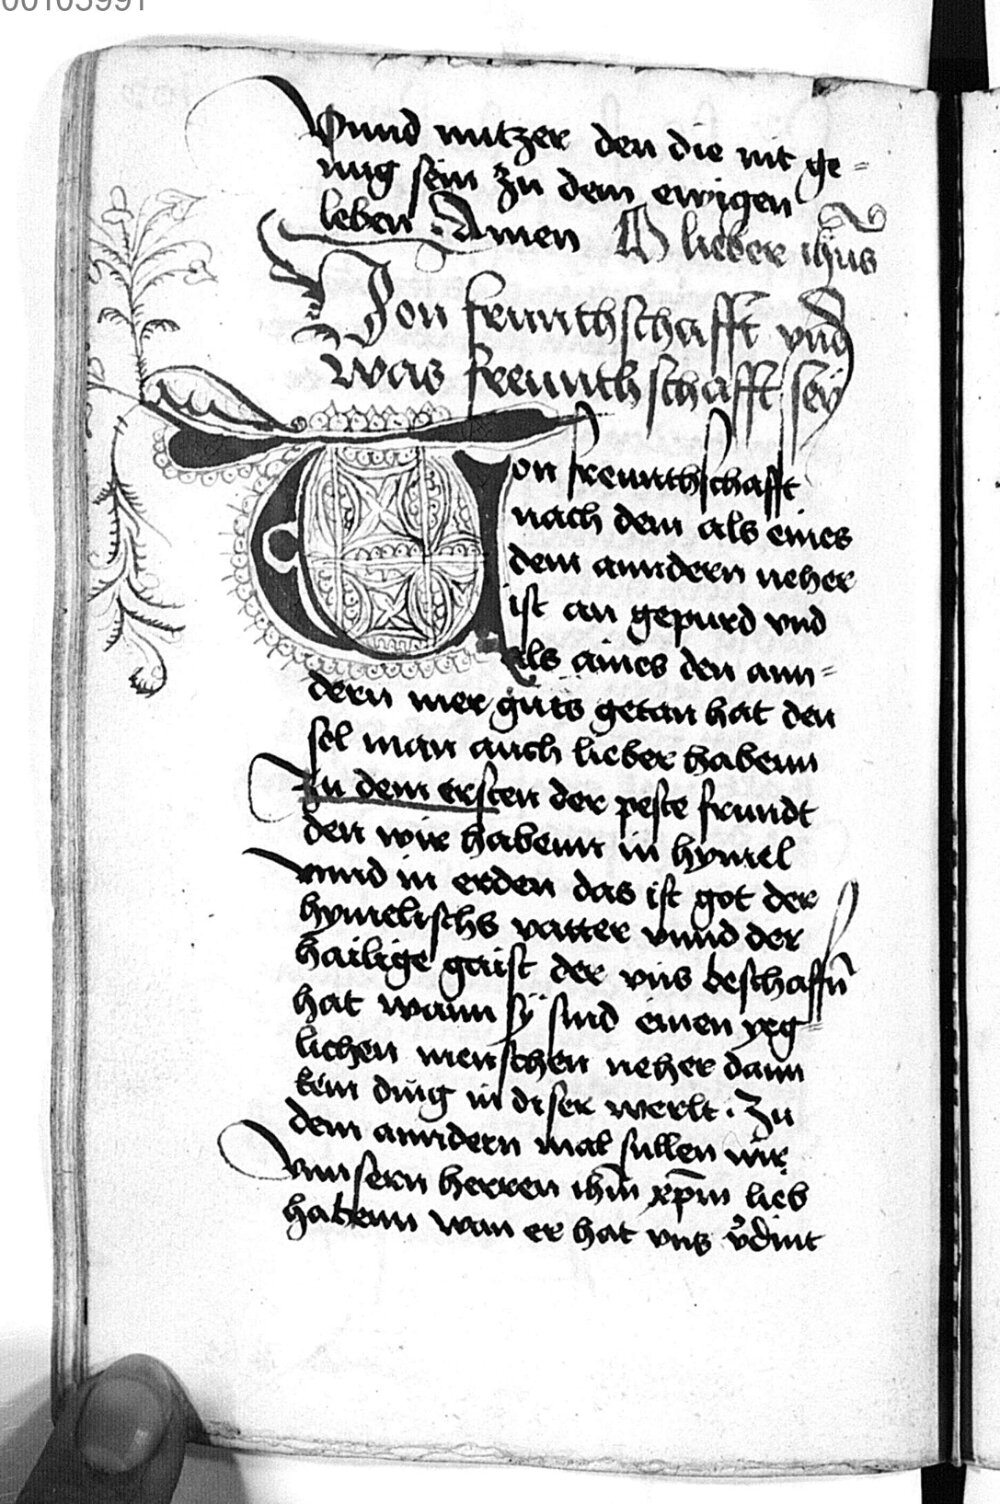 00105991
vnnd nutzer den die nit ge=
nug sein zu dem ewigen
leben Amen O lieber ihus
Von freuntschafft vnd
was freuntschafft sey
Von freuntschafft
nach dem als eines
dem anndern neher
ist an gepurd vnd
als aines den ann=
dern mer guts getan hat den
sol man auch lieber habenn
Zu dem ersten der peste frundt
den wir habenn in hymel
vnnd in erden das ist got der
hymelischs vatter vnnd der
hailige gaist der vns beschaffn̄
hat wann sÿ sind einen yeg=
lichen menschen neher dann
kein ding in diser werlt . Zu
dem anndern mal sullen wir
vnnsern herren ihm̄ xp̄m lieb
habenn wan er hat vns v̉dint